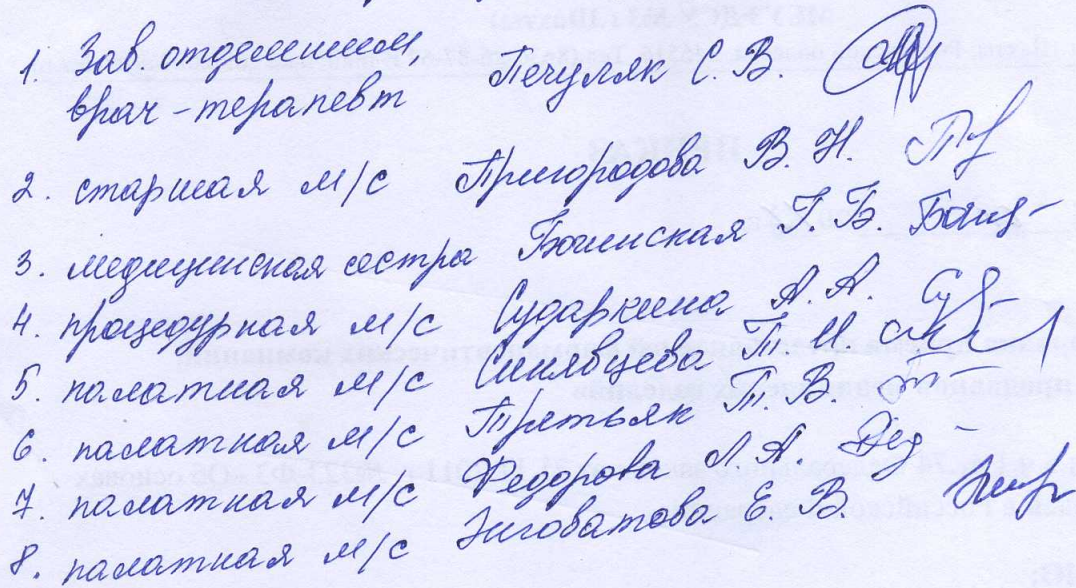 1. Зав. отделением Печуляк С. В.
врач-терапевт
2. старшая м/с Пригородова В. Н.
3. медицинская сестра Г. Б.
4. процедурная м/с Сударкина А. А.
5. палатная м/с Синявцева Т. И.
6. палатная м/с Третьяк Т. В.
7. палатная м/с Федорова Л. А.
8. палатная м/с Зиговатова Е. В.